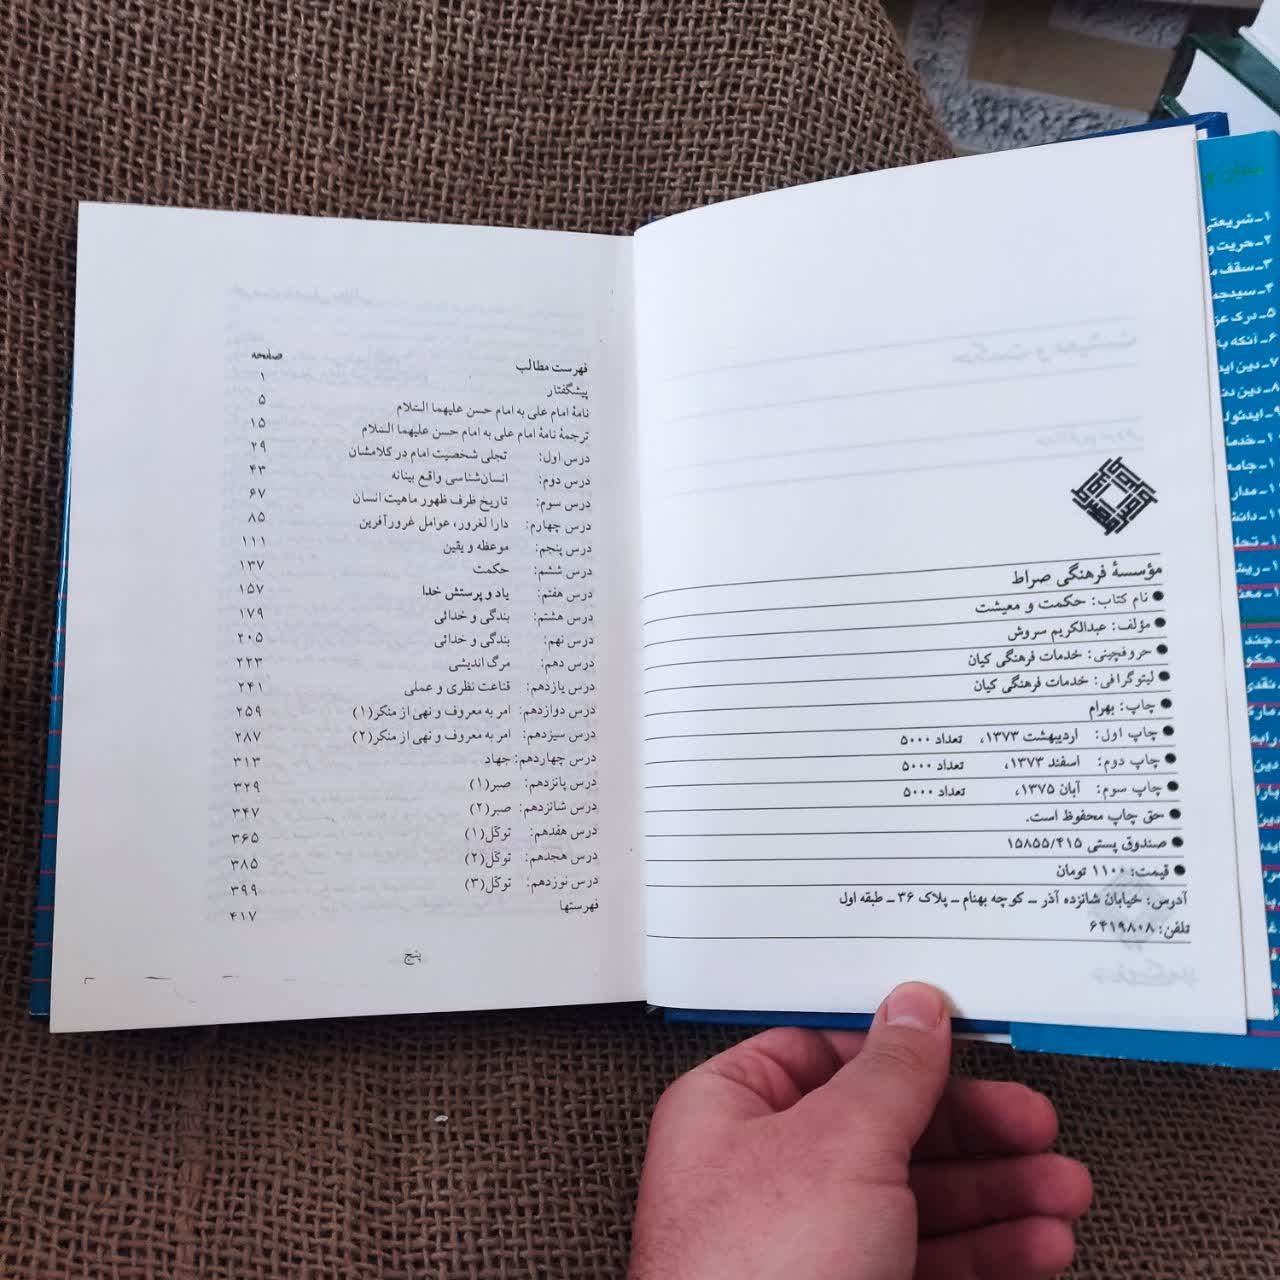 مؤسسهٔ فرهنگی صراط
● نام کتاب: حکمت و معیشت
● مؤلف: عبدالکریم سروش
● حروفچینی: خدمات فرهنگی کیان
● لیتوگرافی: خدمات فرهنگی کیان
● چاپ: بهرام
● چاپ اول: اردیبهشت ۱۳۷۳، تعداد ۵۰۰۰
● چاپ دوم: اسفند ۱۳۷۳، تعداد ۵۰۰۰
● چاپ سوم: آبان ۱۳۷۵، تعداد ۵۰۰۰
● حق چاپ محفوظ است.
● صندوق پستی ۱۵۸۵۵/۴۱۵
● قیمت: ۱۱۰۰ تومان
آدرس: خیابان شانزده آذر ـ کوچه بهنام ـ پلاک ۳۶ ـ طبقه اول
تلفن: ۶۴۱۹۸۰۸
فهرست مطالب صفحه
پیشگفتار ۱
نامهٔ امام علی به امام حسن علیهما السّلام ۵
ترجمهٔ نامهٔ امام علی به امام حسن علیهما السّلام ۱۵
درس اول: تجلی شخصیت امام در کلامشان ۲۹
درس دوم: انسان‌شناسی واقع بینانه ۴۳
درس سوم: تاریخ ظرف ظهور ماهیت انسان ۶۷
درس چهارم: دارا لغرور، عوامل غرورآفرین ۸۵
درس پنجم: موعظه و یقین ۱۱۱
درس ششم: حکمت ۱۳۷
درس هفتم: یاد و پرستش خدا ۱۵۷
درس هشتم: بندگی و خدائی ۱۷۹
درس نهم: بندگی و خدائی ۲۰۵
درس دهم: مرگ اندیشی ۲۲۳
درس یازدهم: قناعت نظری و عملی ۲۴۱
درس دوازدهم: امر به معروف و نهی از منکر(۱) ۲۵۹
درس سیزدهم: امر به معروف و نهی از منکر(۲) ۲۸۷
درس چهاردهم: جهاد ۳۱۳
درس پانزدهم: صبر(۱) ۳۲۹
درس شانزدهم: صبر(۲) ۳۴۷
درس هفدهم: توکّل(۱) ۳۶۵
درس هجدهم: توکّل(۲) ۳۸۵
درس نوزدهم: توکّل(۳) ۳۹۹
فهرستها ۴۱۷
پنج
۱ـ شریعتی
۲ـ حریت و
۳ـ سقف
۵ـ درک
۶ـ آنکه